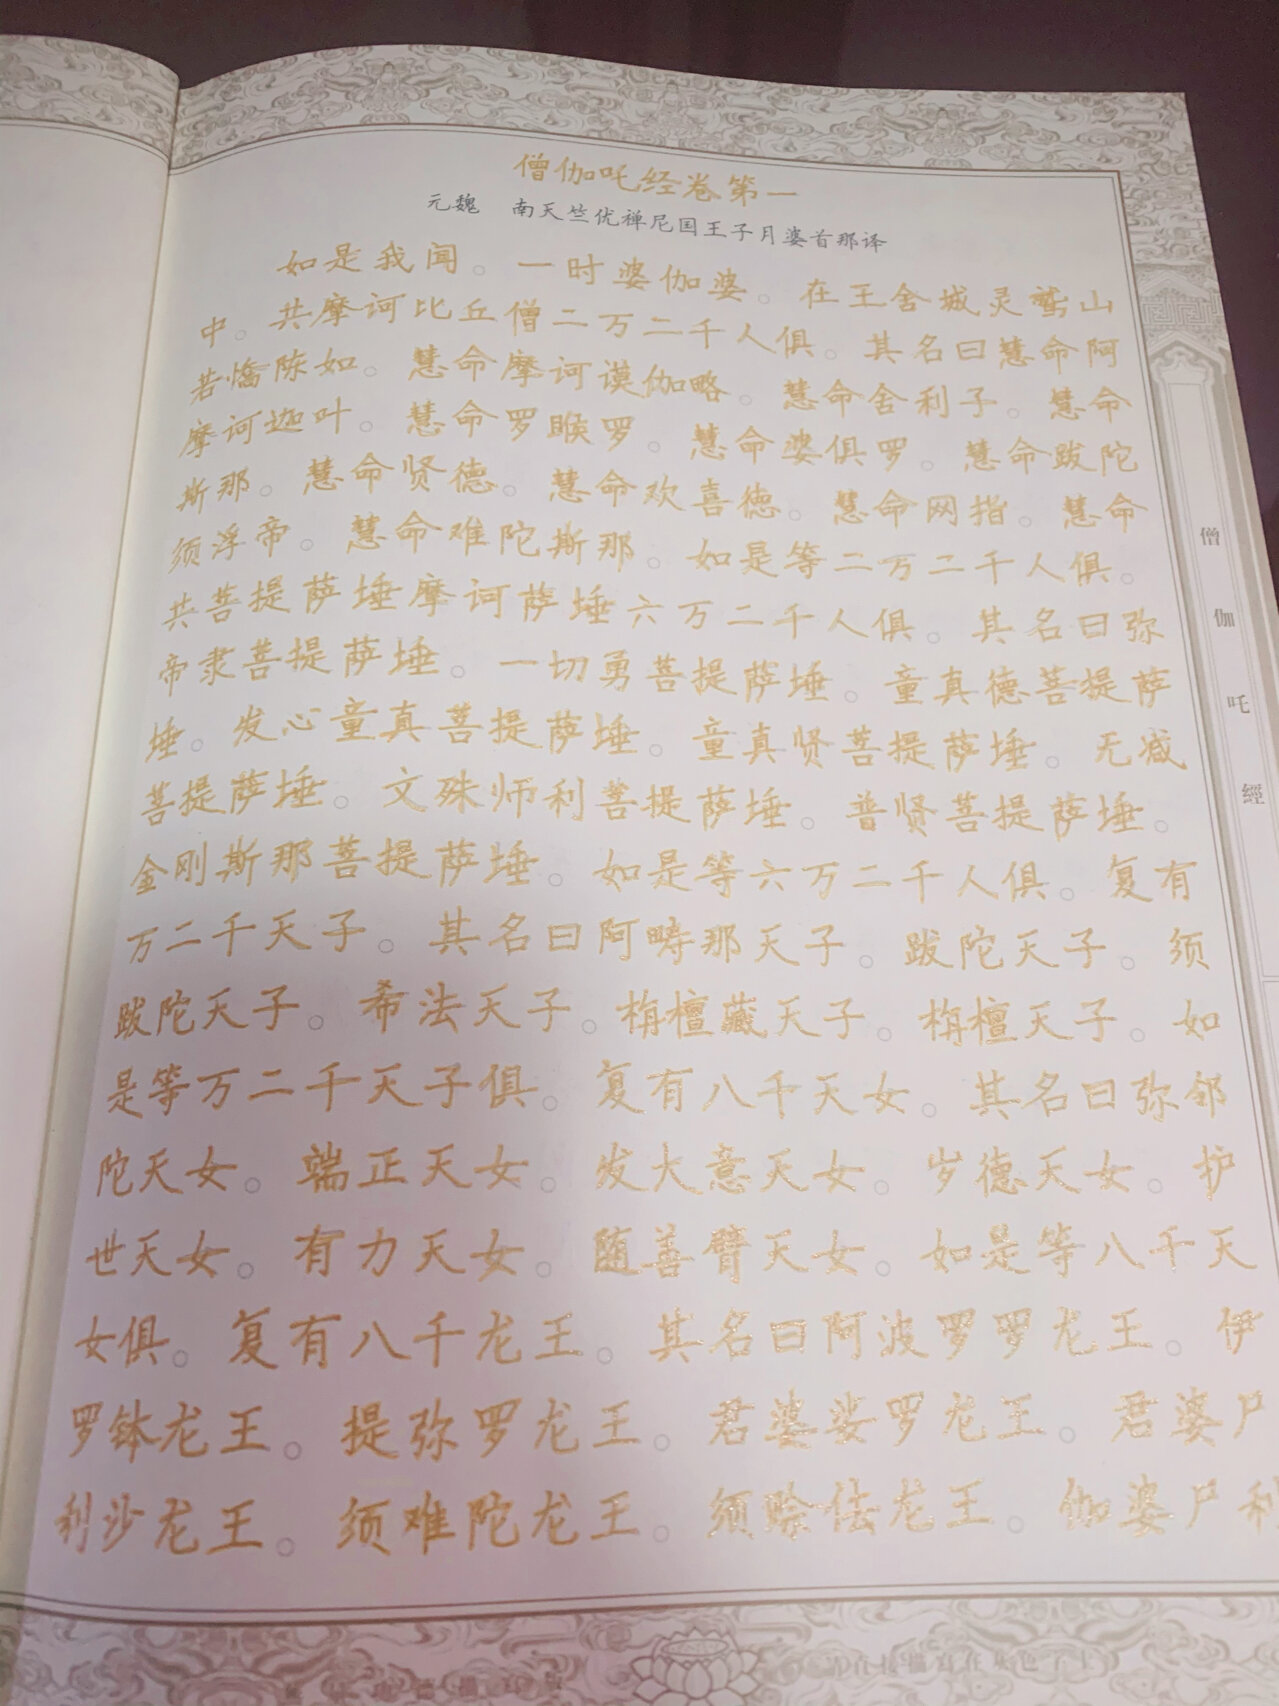 僧伽吒经卷第一
元魏 南天竺优禅尼国王子月婆首那译
如是我闻。一时婆伽婆。在王舍城灵鹫山
中。共摩诃比丘僧二万二千人俱。其名曰慧命阿
若憍陈如。慧命摩诃谟伽略。慧命舍利子。慧命
摩诃迦叶。慧命罗睺罗。慧命婆俱罗。慧命跋陀
斯那。慧命贤德。慧命欢喜德。慧命网指。慧命
须浮帝。慧命难陀斯那。如是等二万二千人俱。
共菩提萨埵摩诃萨埵六万二千人俱。其名曰弥
帝隶菩提萨埵。一切勇菩提萨埵。童真德菩提萨
埵。发心童真菩提萨埵。童真贤菩提萨埵。无减
菩提萨埵。文殊师利菩提萨埵。普贤菩提萨埵。
金刚斯那菩提萨埵。如是等六万二千人俱。复有
万二千天子。其名曰阿畴那天子。跋陀天子。须
跋陀天子。希法天子。栴檀藏天子。栴檀天子。如
是等万二千天子俱。复有八千天女。其名曰弥邻
陀天女。端正天女。发大意天女。岁德天女。护
世天女。有力天女。随善臂天女。如是等八千天
女俱。复有八千龙王。其名曰阿波罗罗龙王。伊
罗钵龙王。提弥罗龙王。君婆娑罗龙王。君婆尸
利沙龙王。须难陀龙王。须赊佉龙王。伽婆尸利
僧伽吒經